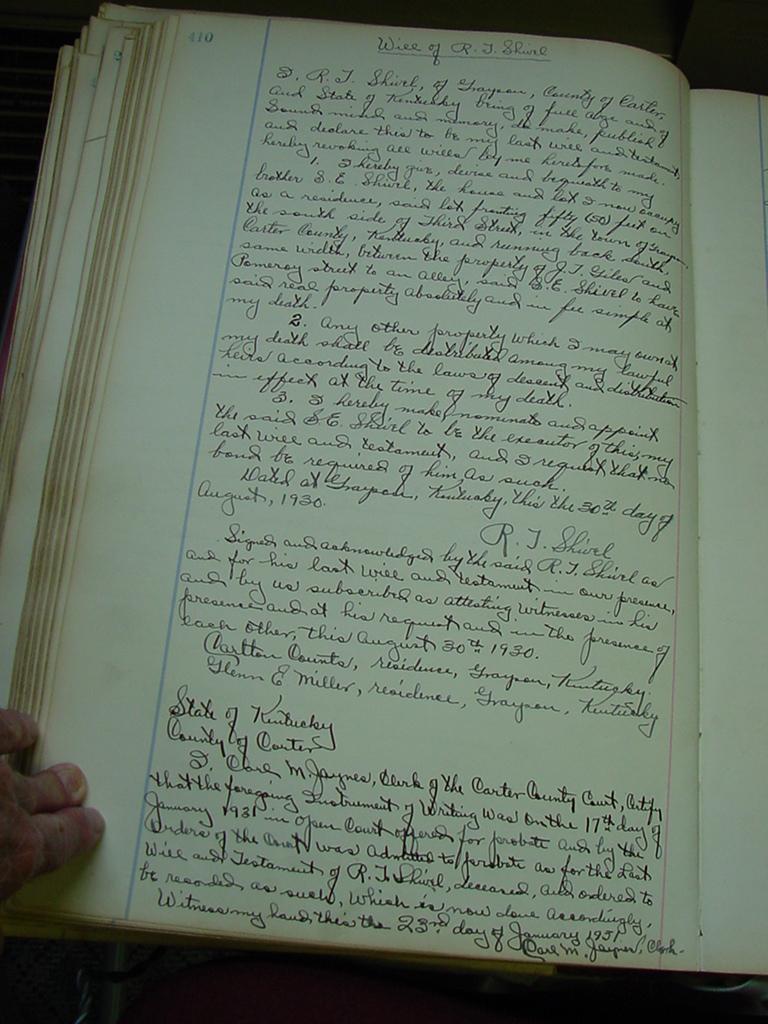 410
Will of R. T. Shivel
I, R. T. Shivel, of Grayson, County of Carter,
and State of Kentucky being of full age and of
sound mind and memory, do make, publish
and declare this to be my last will and testament,
hereby revoking all wills by me heretofore made.
1. I hereby give, devise and bequeath to my
brother S. E. Shivel, the house and lot I now occupy
as a residence, said lot fronting fifty (50) feet on
the south side of Third Street, in the town of Grayson,
Carter County, Kentucky, and running back south,
same width, between the property of J. T. Giles and
Pomeroy street to an alley, said S. E. Shivel to have
said real property absolutely and in fee simple at
my death.
2. Any other property which I may own at
my death shall be distributed among my lawful
heirs according to the laws of descent and distribution
in effect at the time of my death.
3. I hereby make, nominate and appoint
the said S. E. Shivel to be the executor of this, my
last will and testament, and I request that no
bond be required of him, as such.
Dated at Grayson, Kentucky, this the 30th day of
August, 1930.
R. T. Shivel
Signed and acknowledged by the said R. T. Shivel as
and for his last will and testament in our presence,
and by us subscribed as attesting witnesses in his
presence and at his request and in the presence of
each other, this August 30th 1930.
Carlton Counts, residence, Grayson, Kentucky.
Glenn E. Miller, residence, Grayson, Kentucky
State of Kentucky
County of Carter
I, Carl M. Jaynes, Clerk of the Carter County Court, Certify
that the foregoing Instrument of Writing was on the 17th day of
January 1931 in open Court offered for probate and by the
Orders of the Court was admitted to probate as for the Last
Will and Testament of R. T. Shivel, deceased, and ordered to
be recorded as such, which is now done accordingly,
Witness my hand this the 23rd day of January 1931
Carl M. Jaynes, Clerk.